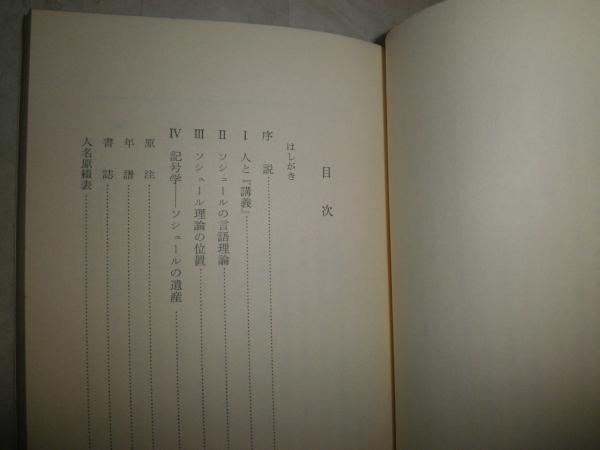 目次
はしがき
序説
Ⅰ 人と『講義』
Ⅱ ソシュールの言語理論
Ⅲ ソシュール理論の位置
Ⅳ 記号学――ソシュールの遺産
原注
年譜
書誌
人名原綴表